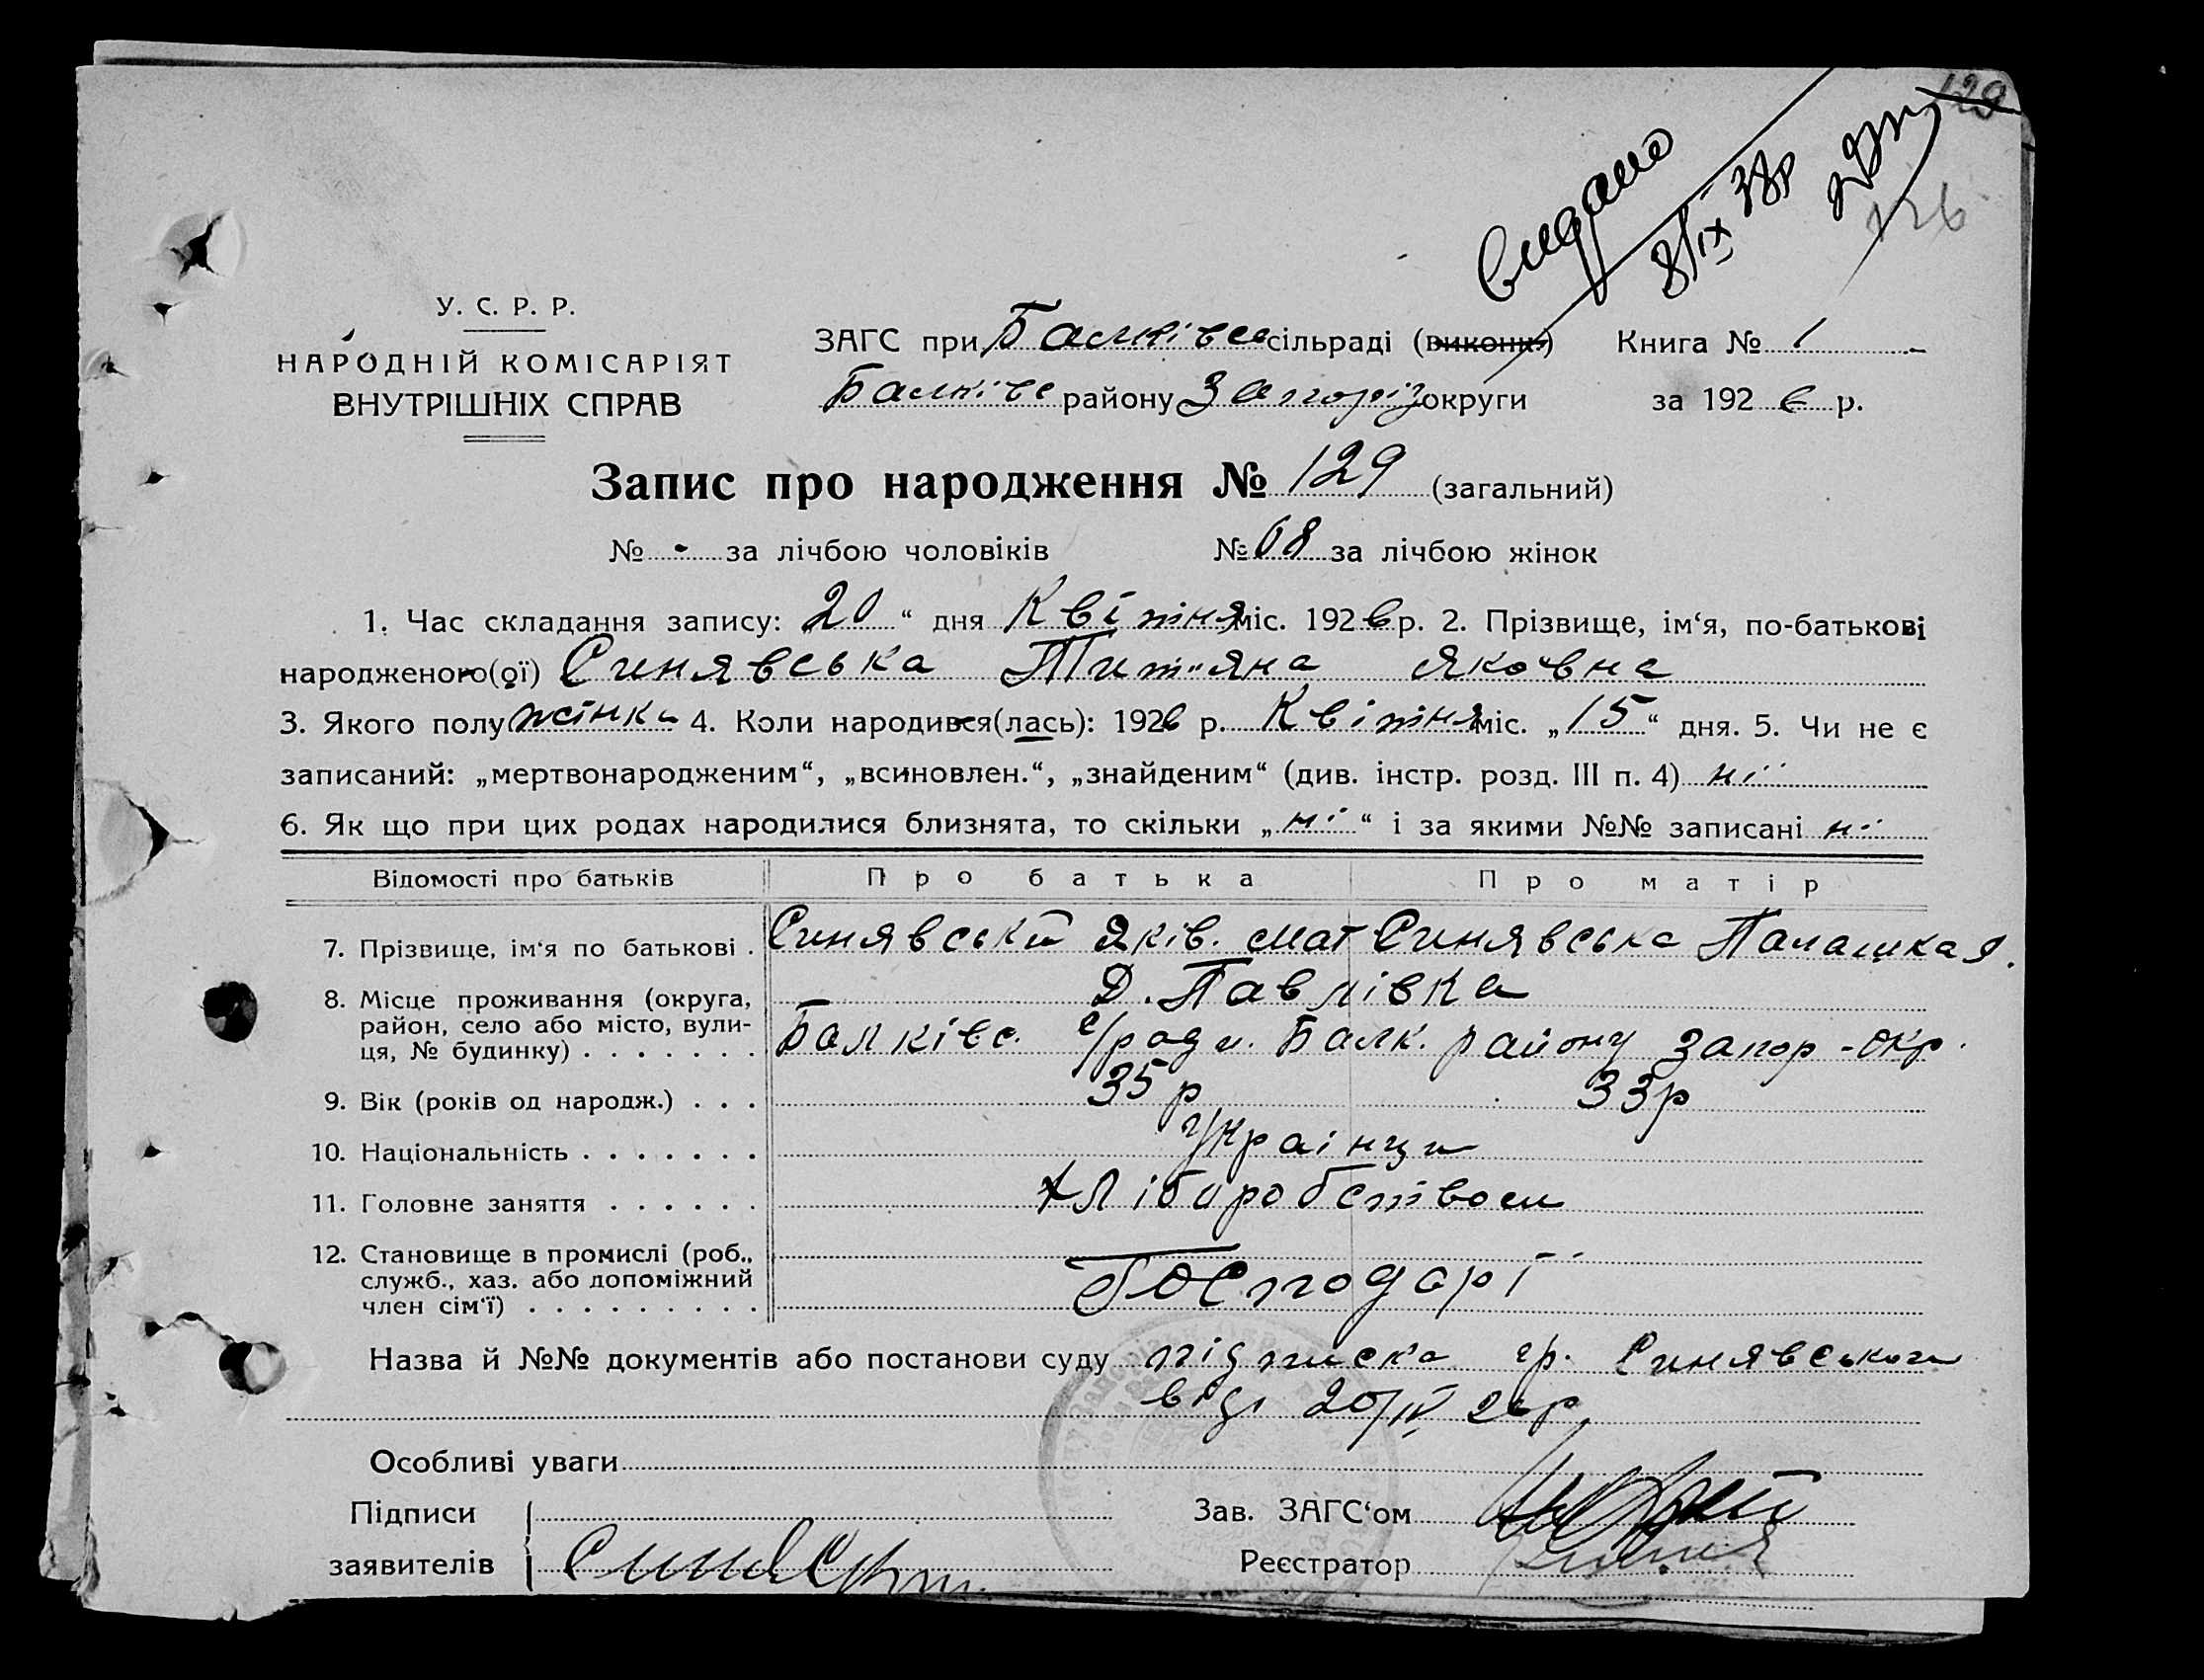 129
видано
8/IX 38р
126
У. С. Р. Р.
НАРОДНІЙ КОМІСАРІЯТ
ВНУТРІШНІХ СПРАВ
ЗАГС при Балківс сільраді (викони.) Книга № 1
Балківс району Запоріз округи за 1926 р.
Запис про народження № 129 (загальний)
№ - за лічбою чоловіків № 68 за лічбою жінок
1. Час складання запису: „20“ дня Квітня міс. 1926 р. 2. Прізвище, ім‘я, по-батькові
народженого(ої) Синявська Титяна Яковна
3. Якого полу жінка 4. Коли народився(лась): 1926 р. Квітня міс. „15“ дня. 5. Чи не є
записаний: „мертвонародженим“, „всиновлен.“, „знайденим“ (див. інстр. розд. III п. 4) ні
6. Як що при цих родах народилися близнята, то скільки „ні“ і за якими №№ записані ні
Відомості про батьків Про батька Про матір
7. Прізвище, ім‘я по батькові . Синявський Яків. Мат Синявська Палашка Я.
8. Місце проживання (округа, Д. Павлівка
район, село або місто, вули-
ця, № будинку) . . . . . . . Балківс. с/ради. Балк. району Запор-окр.
9. Вік (років од народж.) . . . 35р 33р
10. Національність . . . . . . . Українци
11. Головне заняття . . . . . . Хліборобством
12. Становище в промислі (роб.,
служб., хаз. або допоміжний Господарі
член сім‘ї) . . . . . . . . .
Назва й №№ документів або постанови суду підписка гр. Синявського
від 20/IV 26р
Особливі уваги
Підписи Зав. ЗАГС‘ом
заявителів Реєстратор